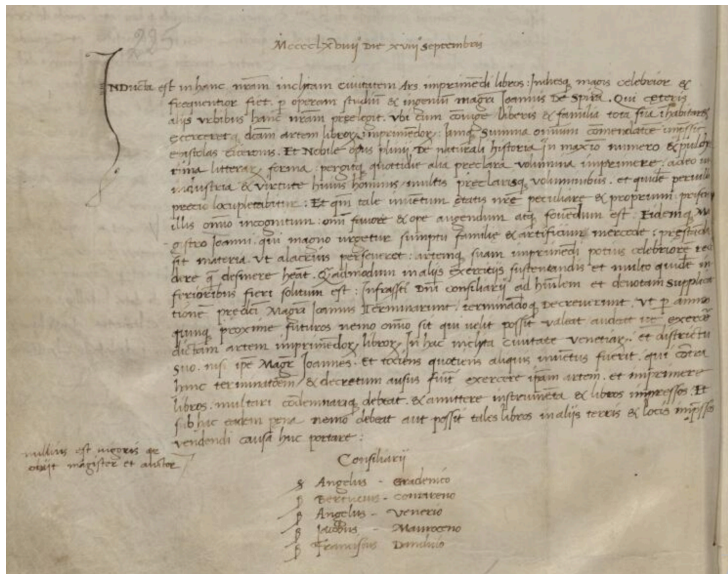 225
Mcccclxviiij Die xviij Septembris
INducta est in hanc nrãm inclytam ciuitatem Ars imprimẽdi libros: Indiesq magis celebrior &
frequentior fiet p operam studiũ & ingeniũ magrĩ Ioannis De Spira. Qui ceteris
alijs urbibus hanc nrãm prelegit. Vbi cum coniuge liberis & familia tota sua ihabitaret
exerceretq dcãm artem librorꝝ imprimẽdorꝝ: Iamq summa omnium comendatiõe impssit
epistolas Ciceronis. Et Nobile opus plinij De naturali historia in maxĩo numero & pulcher
rima litterarꝝ forma: pergitq quottidie alia preclara volumina imprimere: adeo ut
industria & virtute huius hominis, multis preclarisq voluminibus, et quidẽ peruili
precio locupletabitur: Et qm̃ tale inuentum etatis nr̃e peculiare & proprium: priscis
illis omnĩo incognitum: omnĩ fauore & ope augendum atq fouedum est: Eidemq Ma
gistro Ioanni. qui magno urgetur sumptu familie & artificum mercede: prestãda
sit materia. Vt alacrius perseueret: artemq suam imprimẽdi potius celebriorẽ red
dere q̃ desinere heat. Quẽadmodum in alijs exercitijs sustentandis et multo quidẽ in
ferioribus fieri solitum est: Infrascti Dnĩ consiliarij ad hũilem et deuotam supplica
tionẽ predicti Magrĩ Ioannis Terminarunt. terminãdoq Decreuerunt. Vt p annos
quinq proxime futuros nemo omnĩo sit qui uelit possit valeat audeat ue exercere
dictam artem imprimẽdorꝝ librorꝝ In hac inclyta ciuitate venetiarꝝ et districtu
suo. nisi ipse Magr̃ Ioannes. Et tociens quotiens aliquis inuẽtus fuerit. qui cõtra
hanc terminatiõem & decretum ausus fuerit exercere ipsam artem. et imprimere
libros. multari cõdemnariq debeat. & amittere instrumẽta & libros impressos. Et
sub hac eadem pena nemo debeat aut possit tales libros in alijs terris & locis impssos
vendendi causa huc portare:
nullius est uigoris qa
obijt magister et auctor
Consiliarij
Angelus - Gradenico
Bertucius - Contareno
Angelus - Venerio
Iacobus - Mauroceno
Franciscus Dandulo